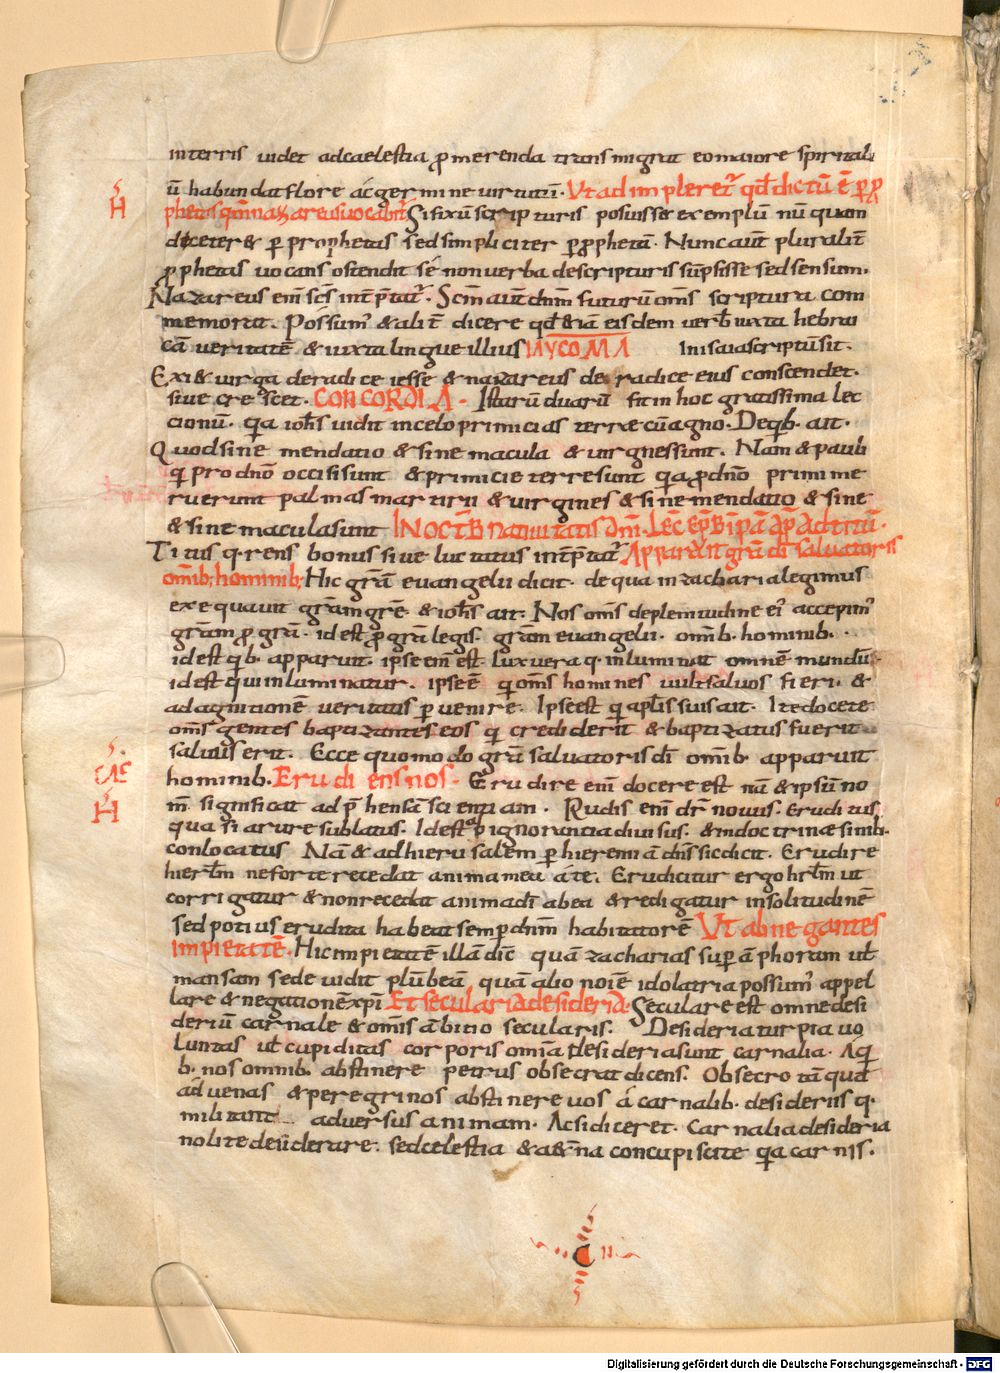 interris uidet adcaelestia ꝓmerenda transmigrat eomaiore spiritali
ū habundatflore ác germine uirtutū. Vtad impleret᷑ qd̄dictū ē ꝑꝓ
phetas qm̄nazareusuocabit᷑ Sifixūscripturis posuisset exemplū nūquam
diceter& ꝑ prophetas sedsimpliciter ꝑꝓphetā. Nuncaut̄ pluralit̄
ꝓphetas uocans ostendit sé nonuerba descripturis sūpsisse sedsensum.
Nazareus em̄ sc̄s int̄p̄tat᷑. Scm̄ aut̄ dnm̄ futurū om̄s scriptura com
memorat. Póssum᷑ &alit̄ dicere qd̄ &iā eisdem uerb̄ iuxta hebrai
cā ueritatē &iuxtalingue illius inisaiascriptūsit.
Exi& uirga deradice iesse &nazareus de radice eius conscendet.
siue crescet. CONCORDIA. Istarū duarū fit in hoc gratissima lec
cionū. qa ioh̄s uidit incelo primicias terræ cū agno. Deqb. ait.
Quodsine mendatio &sine macula &uirgnessunt. Nam &paub
qi prodnō occisisunt &primicie terresunt qaꝓdnō primi me
ruerunt palmas martirii &uirgines &sine mendatio &sine
&sine maculasunt IN OCT̄B natiuitatis dn̄i. Lec̄ ep̄B̄ip̄a ap̄ Ad titū.
Titus q.rens bonus siue luctatus int̄p̄tat᷑ Apparuit grā di saluatoris
omib; hominib; Hic grā euangelii dicit. de qua in zacharialegimus
exequauit grām grē. &ioh̄s ait. Nos om̄s deplenitudine ei᷑ accepim᷑
grām ꝓ grā. idest ꝓ grā legis. grām euangelii. omīb. hominib.
idest qb. apparuit. ipse em̄ est. Lux uera q. inluminat omnē mundū.
idest qui inluminatur. ipseē qi om̄s homines uult saluos fieri. &
adagnitionē ueritatis ꝑuenire. Ipseest qi apl̄is suis ait. Ite docete
om̄s gentes baptizantes eos qi crediderit &baptizatus fuerit
saluus erit. Ecce quomodo grā saluatoris dī omīb apparuit
hominib. Erudiens nos. Erudire em̄ docere est nā &ipsūno
m̄ significat ad p̄hensā scientiam. Rudis em̄ dr̄ nouus. Eruditus
qua siarure sublatus. Idest ap ignorantia diuisus. &indoctrinæ simib.
conlocatus Nā &adhierusalem ꝑ hieremiā dn̄s sic dicit. Erudire
hierl̄m neforte recedat anima mea ate. Erudicitur ergo hrl̄m ut
corrigatur &nonrecedat animadī abea &redigatur insolitudinē
sed potius erudita habeat semp dnm̄ habitatorē Vt abnegantes
impietatē. Hic impietatē illā dic̄ quā zacharias suꝑ āphoram ul̄
mansam sede uidit plūbeā, quā alio noīe idolatria possum᷑ appel
lare &negationēxpi Et secularia desideria. Seculare est omne desi
deriū carnale &om̄is ābitio secularis. Desideriatur pia uo
luntas ul̄ cupiditas corporis omīa desideriasunt carnalia. Áqi
b. nos omīb. abstinere petrus obsecrat dicens. Obsecro tāquā
áduenas &peregrinos abstinere uos á carnalib. desideriis q.
militant aduersus animam. Acsidiceret. Carnaliadesideria
nolite desiderare. sed celestia &aet&na concupiscite qa carnis.
Digitalisierung gefördert durch die Deutsche Forschungsgemeinschaft - DFG